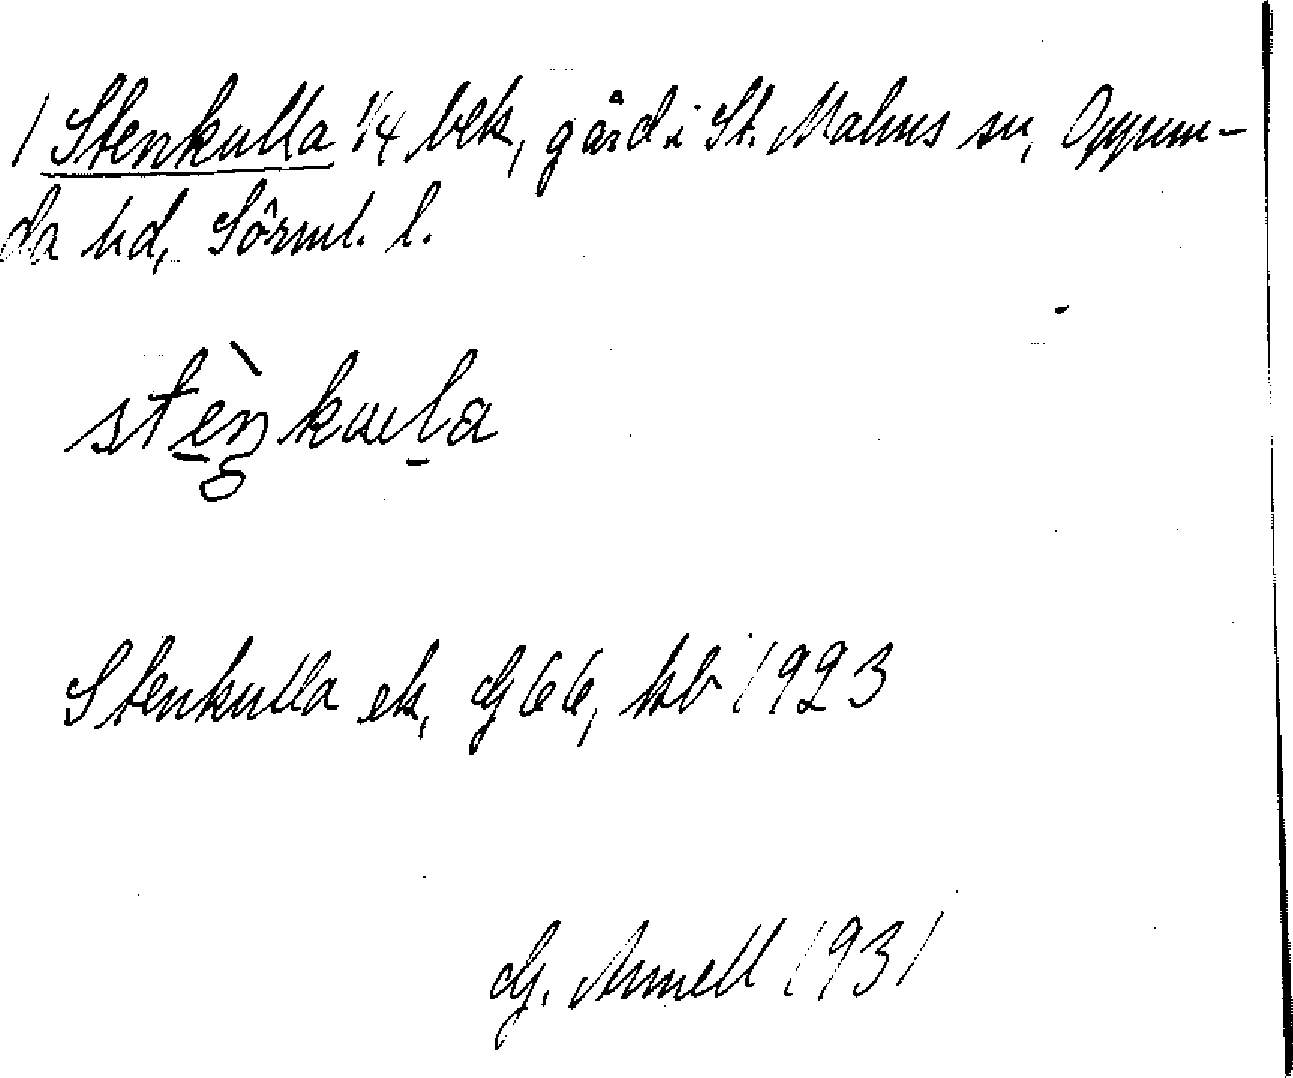 1 Stenkulla 1/4 bek, gård i St. Malms sn, Oppun-
da hd, Sörml. l.
stèŋkula
Stenkulla ek, G 66, kb 1923
G. Annell 1931